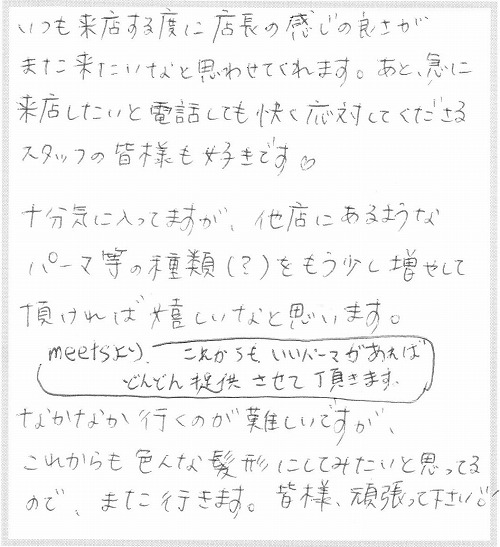 いつも来店する度に店長の感じの良さが
また来たいなと思わせてくれます。あと、急に
来店したいと電話しても快く応対してくださる
スタッフの皆様も好きです♡
十分気に入ってますが、他店にあるような
パーマ等の種類(?)をもう少し増やして
頂ければ嬉しいなと思います。
meetsより、これからも、いいパーマがあれば
どんどん提供させて頂きます。
なかなか行くのが難しいですが、
これからも色んな髪形にしてみたいと思ってる
ので、また行きます。皆様、頑張って下さい!